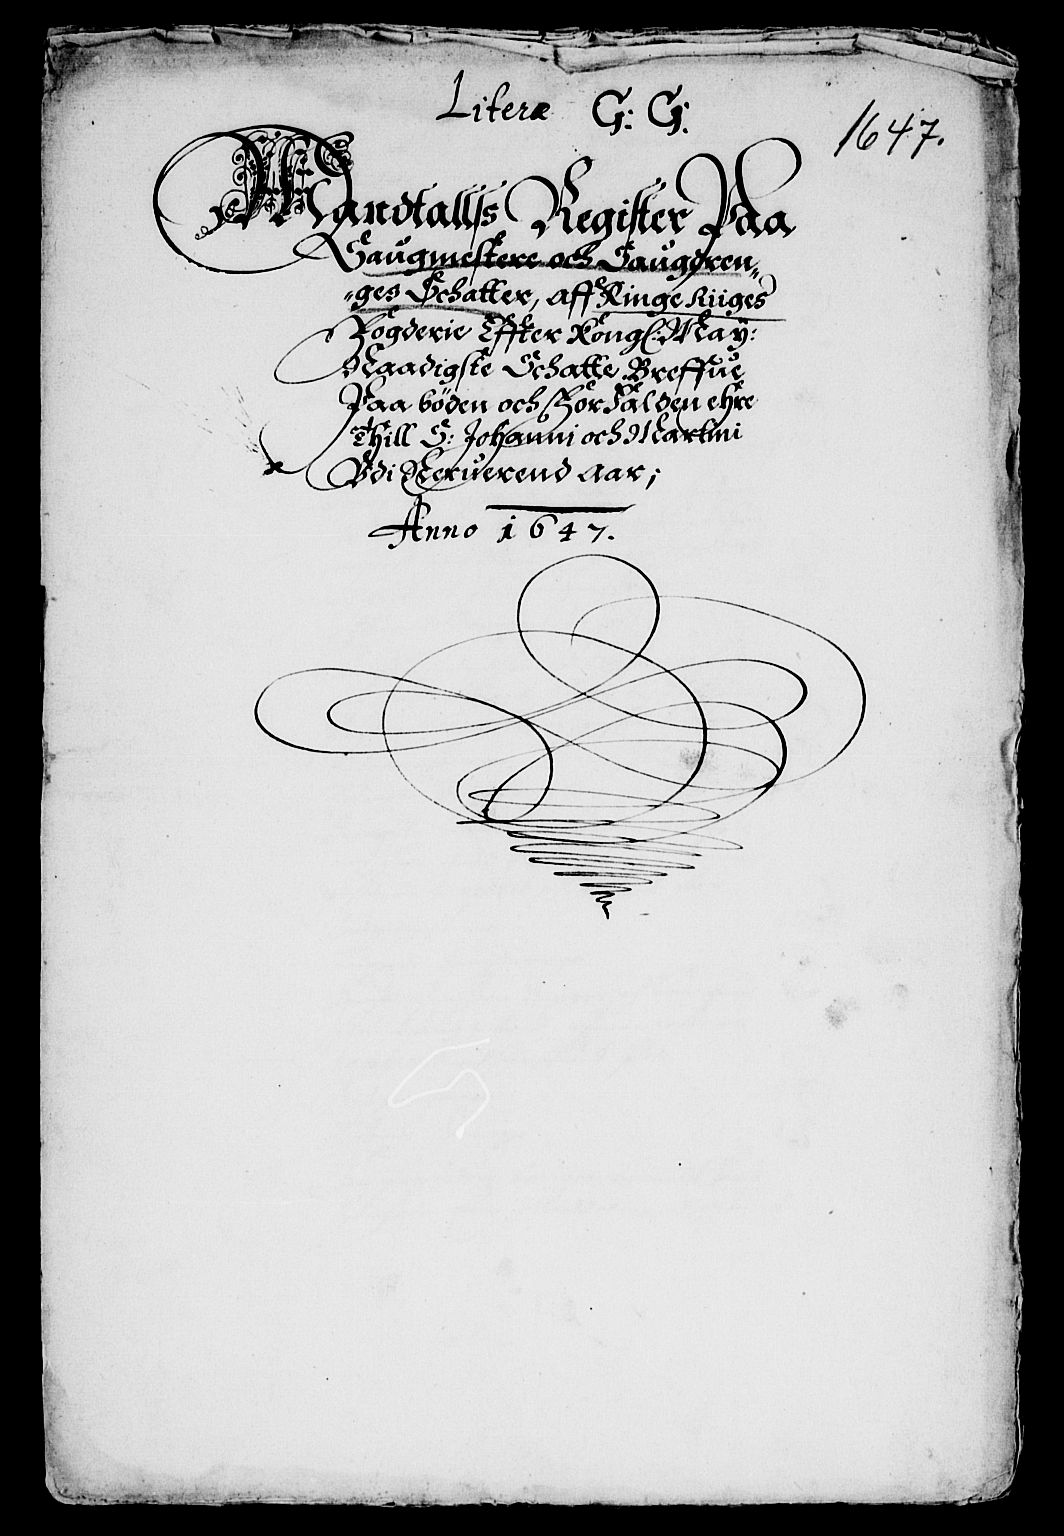 Literæ G: G:
1647.
Mandtallss Register Paa
Saugmestere och Saugdren„
„ges Schatter, aff Ringeriiges
Fögderie Effter Kongl: May:
Naadigste Schatte Breffue
Paa böden och forfalden ehre
Thill S: Johanni och Martini
Vdi Neruerend Aar;
Anno 1647.